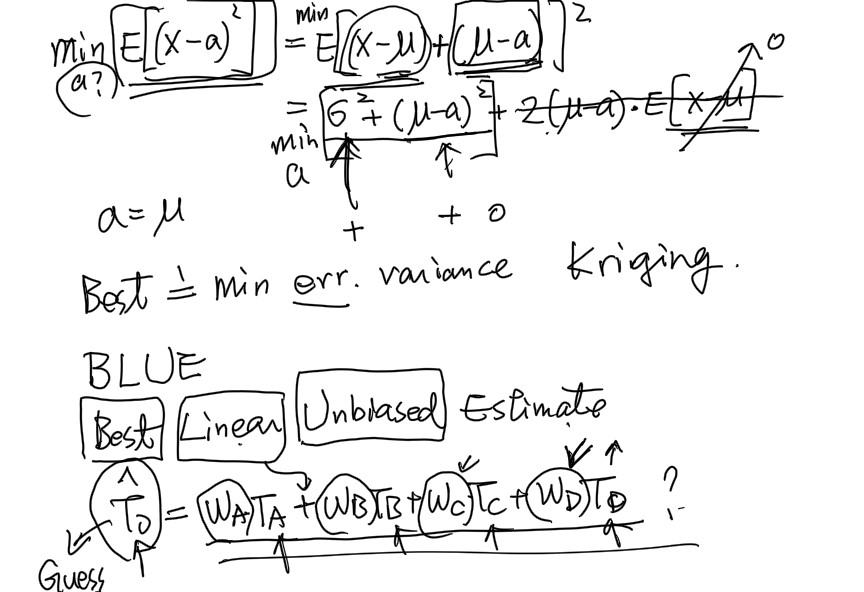 min E[(x-a)²] = min E[(x-μ)+(μ-a)]²
a?
= σ²+(μ-a)² + 2(μ-a)·E[x-μ] 0
min
a
a=μ + + 0
Best ≐ min err. variance Kriging.
BLUE
Best Linear Unbiased Estimate
T̂o = WA TA + WB TB + WC TC + WD TD ?
Guess